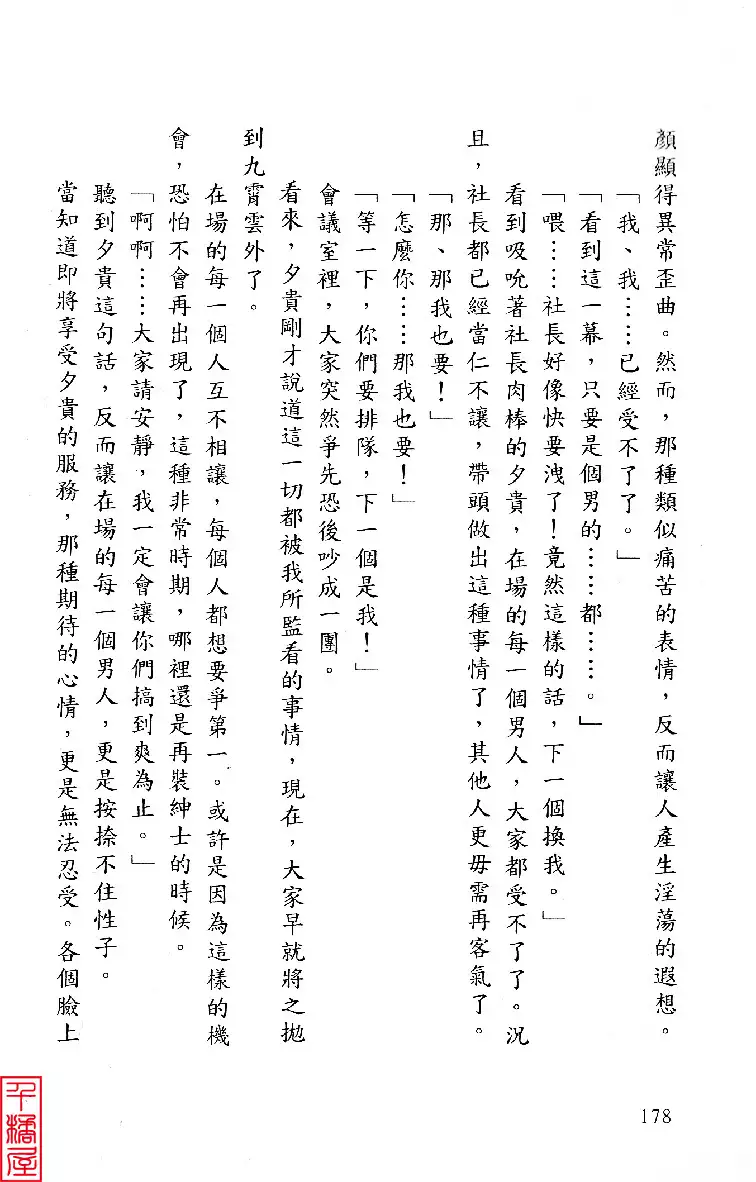 顏顯得異常歪曲。然而，那種類似痛苦的表情，反而讓人產生淫蕩的遐想。
「我、我……已經受不了了。」
「看到這一幕，只要是個男的……都……。」
「喂……社長好像快要洩了！竟然這樣的話，下一個換我。」
看到吸吮著社長肉棒的夕貴，在場的每一個男人，大家都受不了了。況
且，社長都已經當仁不讓，帶頭做出這種事情了，其他人更毋需再客氣了。
「那、那我也要！」
「怎麼你……那我也要！」
「等一下，你們要排隊，下一個是我！」
會議室裡，大家突然爭先恐後吵成一團。
看來，夕貴剛才說道這一切都被我所監看的事情，現在，大家早就將之拋
到九霄雲外了。
在場的每一個人互不相讓，每個人都想要爭第一。或許是因為這樣的機
會，恐怕不會再出現了，這種非常時期，哪裡還是再裝紳士的時候。
「啊啊……大家請安靜，我一定會讓你們搞到爽為止。」
聽到夕貴這句話，反而讓在場的每一個男人，更是按捺不住性子。
當知道即將享受夕貴的服務，那種期待的心情，更是無法忍受。各個臉上
178
千橘屋